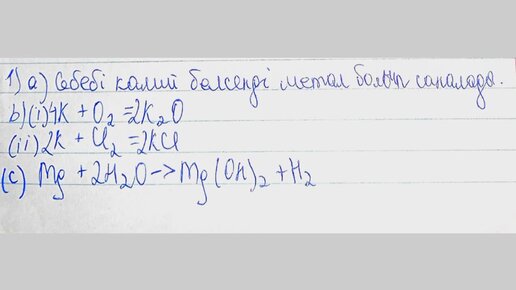 1) a) Себебі калий белсенді метал болып саналады.
b) (i) 4K + O₂ = 2K₂O
(ii) 2K + Cl₂ = 2KCl
(c) Mg + 2H₂O -> Mg(OH)₂ + H₂